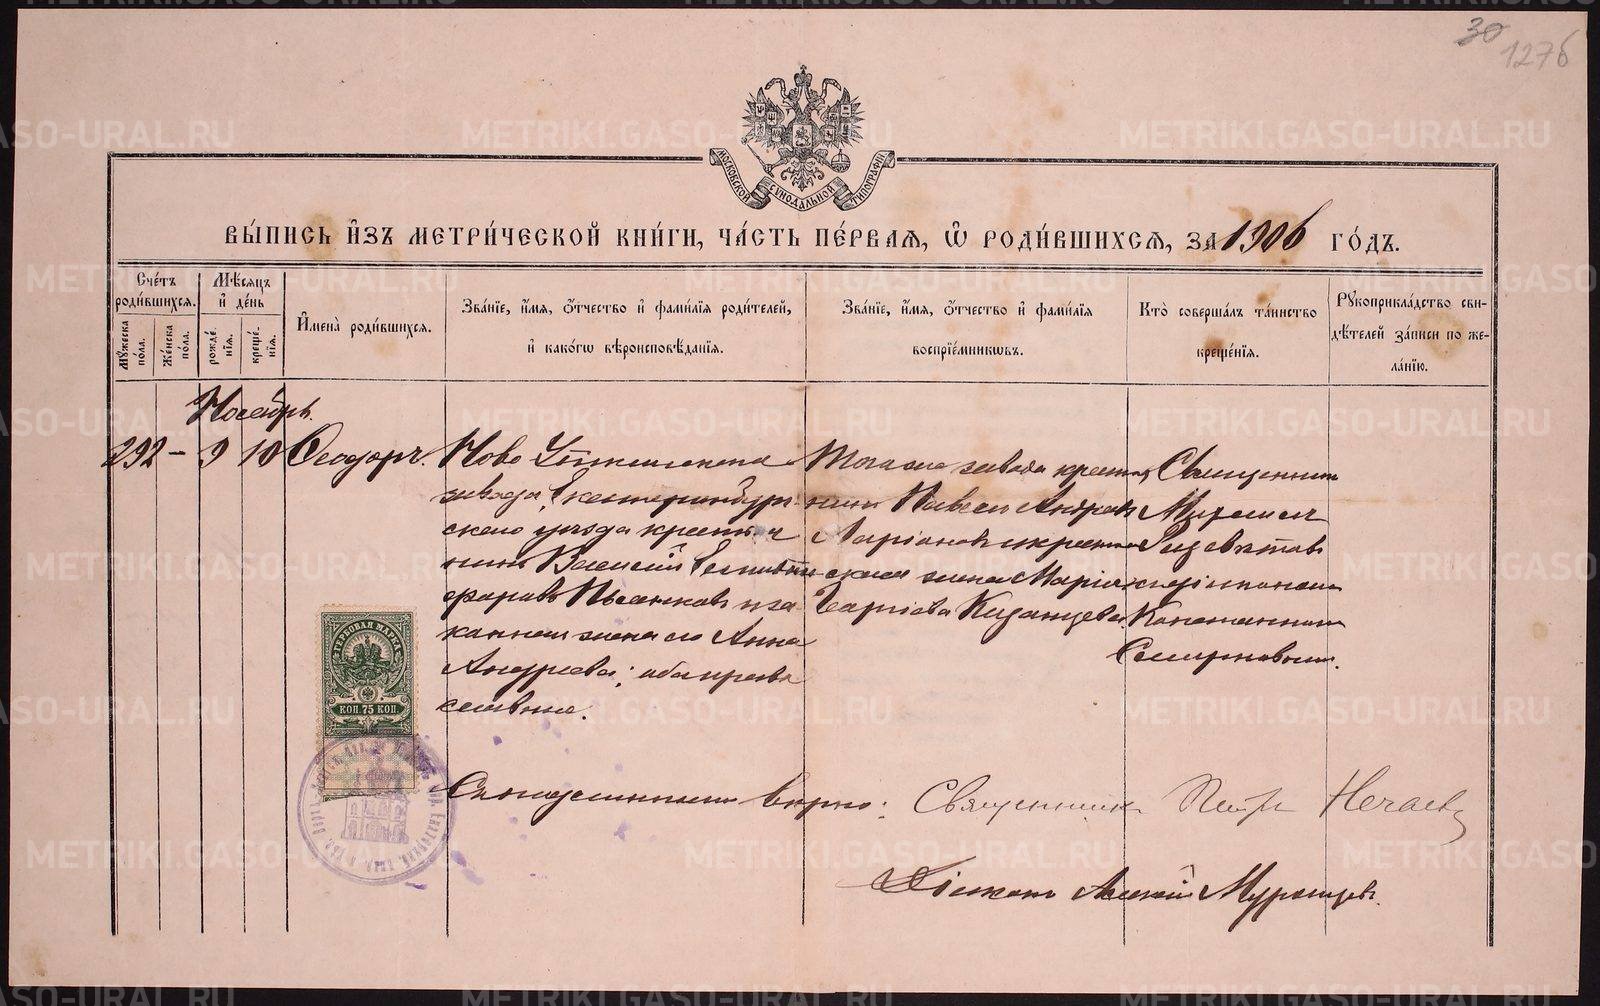 30
127б
МОСКОВСКОЙ СѴНОДАЛЬНОЙ ТИПОГРАФІИ
ВЫ́ПИСЬ И҆ЗЪ МЕТРИ́ЧЕСКОЙ КНИ́ГИ, ЧА́СТЬ ПЕ́РВАѦ, Ѽ РОДИ́ВШИХСѦ, ЗА 1906 ГО́ДЪ.
Сче́тъ роди́вшихсѧ.
Мꙋ́жеска по́ла.
Же́нска по́ла.
Мѣ́сѧцъ и҆ де́нь
рожде́нїѧ.
креще́нїѧ.
И҆мена̀ роди́вшихсѧ.
Зва́нїе, и҆́мѧ, ѻ҆́тчество и҆ фами́лїѧ роди́телей,
и҆ како́гѡ вѣроисповѣ́данїѧ.
Зва́нїе, и҆́мѧ, ѻ҆́тчество и҆ фами́лїѧ
воспрїе́мникѡвъ.
Кто̀ соверша́лъ та́инство
креще́нїѧ.
Рꙋкоприкла́дство сви-
дѣ́телей за́писи по же-
ла́нїю.
Ноябрь.
292 - 9 10 Ѳеодоръ.
Ново Уткинскаго
завода, Екатеринбург-
скаго уѣзда крестья-
нинъ Василій
Пьянковъ и за-
конная жена его Анна
Андреева; оба право-
славные.
Того же завода крестья-
нинъ Павелъ Андреев
Ларіоновъ и крестьян-
ская жена Марія
Казанцева.
Священник
Михаил
и діаконом
Константином
Смирновым.
ГЕРБОВАЯ МАРКА
КОП. 75 КОП.
Съ подлиннымъ вѣрно: Священникъ Петръ Нечаевъ
Діаконъ Алексій
METRIKI.GASO-URAL.RU